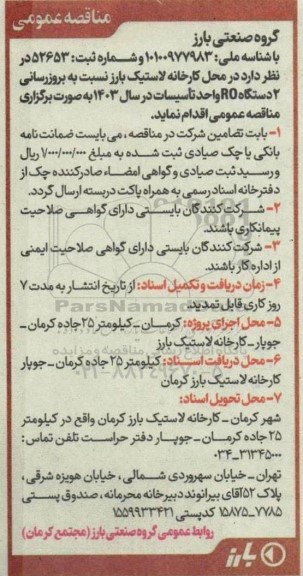 مناقصه عمومی
گروه صنعتی بارز
با شناسه ملی: ۱۰۱۰۰۹۷۷۹۸۳ و شماره ثبت: ۵۲۶۵۳ در
نظر دارد در محل کارخانه لاستیک بارز نسبت به بروزرسانی
۲ دستگاه RO واحد تأسیسات در سال ۱۴۰۳ به صورت برگزاری
مناقصه عمومی اقدام نماید.
۱- بابت تضامین شرکت در مناقصه، می بایست ضمانت نامه
بانکی یا چک صیادی ثبت شده به مبلغ ۷/۰۰۰/۰۰۰/۰۰۰ ریال
و رسید ثبت صیادی و گواهی امضاء صادرکننده چک از
دفترخانه اسناد رسمی به همراه پاکت دربسته ارسال گردد.
۲- شرکت کنندگان بایستی دارای گواهی صلاحیت
پیمانکاری باشند.
۳- شرکت کنندگان بایستی دارای گواهی صلاحیت ایمنی
از اداره کار باشند.
۴- زمان دریافت و تکمیل اسناد: از تاریخ انتشار به مدت ۷
روز کاری قابل تمدید.
۵- محل اجرای پروژه: کرمان ـ کیلومتر ۲۵ جاده کرمان ـ
جوپار ـ کارخانه لاستیک بارز
۶- محل دریافت اسناد: کیلومتر ۲۵ جاده کرمان ـ جوپار
کارخانه لاستیک بارز کرمان
۷- محل تحویل اسناد:
شهر کرمان ـ کارخانه لاستیک بارز کرمان واقع در کیلومتر
۲۵ جاده کرمان ـ جوپار دفتر حراست تلفن تماس:
۰۳۴-۳۱۳۴۵۰۰۰
تهران ـ خیابان سهروردی شمالی، خیابان هویزه شرقی،
پلاک ۵۲ آقای بیرانوند دبیرخانه محرمانه، صندوق پستی
۷۷۸۵ـ۱۵۸۷۵ کدپستی ۱۵۵۹۹۳۳۴۲۱
روابط عمومی گروه صنعتی بارز (مجتمع کرمان)
بارز